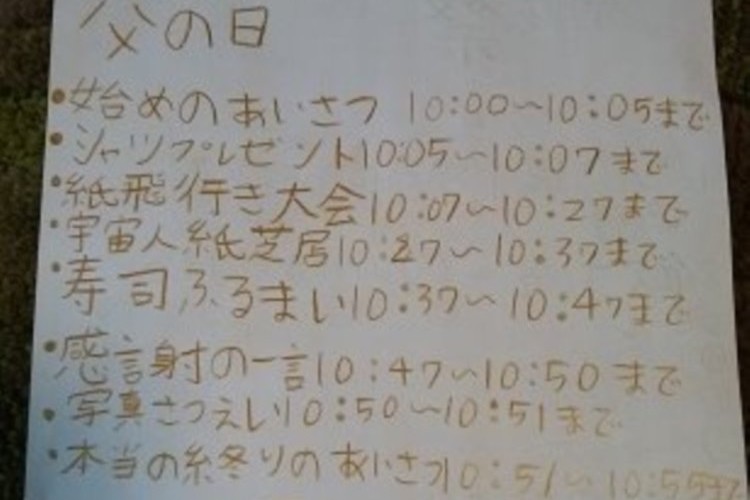 父の日
・始めのあいさつ 10:00〜10:05まで
・シャツプレゼント10:05〜10:07まで
・紙飛行き大会10:07〜10:27まで
・宇宙人紙芝居10:27〜10:37まで
・寿司ふるまい10:37〜10:47まで
・感謝の一言10:47〜10:50まで
・写真さつえい10:50〜10:51まで
・本当の終りのあいさつ10:51〜10:55まで